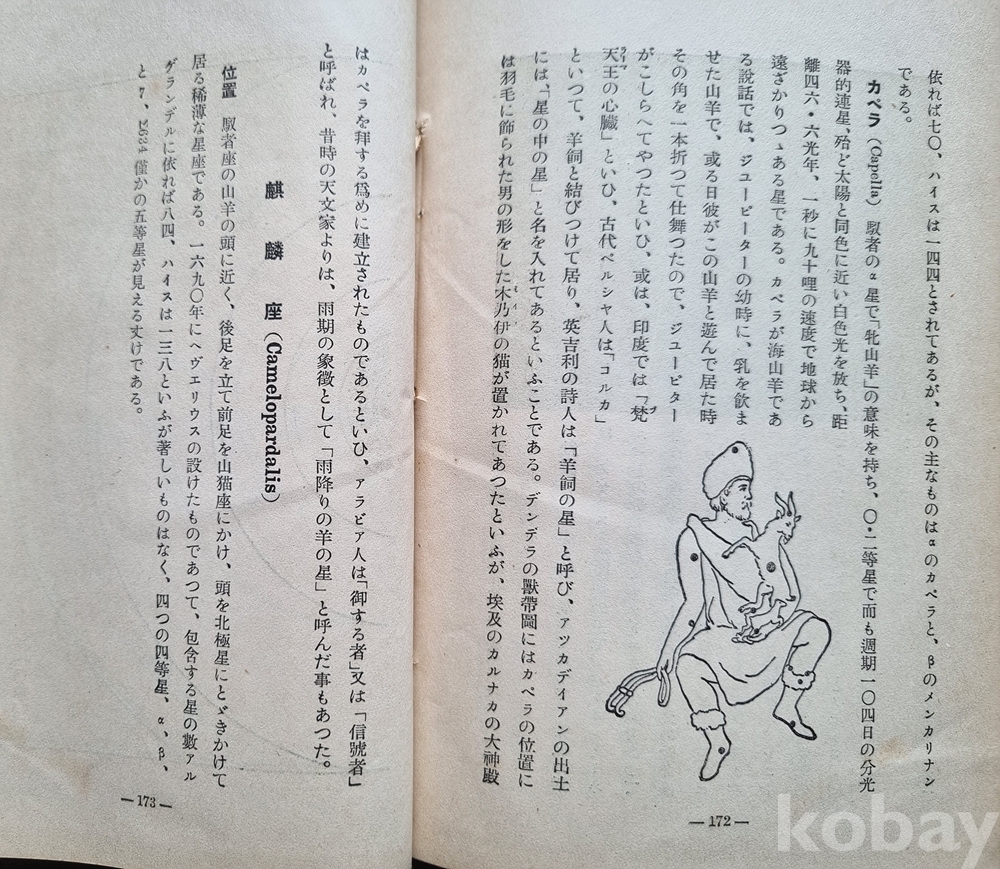 依れば七〇、ハイスは一四四とされてあるが、その主なものはαのカペラと、βのメンカリナン
である。
カペラ（Capella） 馭者のα星で「牝山羊」の意味を持ち、〇・二等星で而も週期一〇四日の分光
器的連星、殆ど太陽と同色に近い白色光を放ち、距
離四六・六光年、一秒に九十哩の速度で地球から
遠ざかりつゝある星である。カペラが海山羊であ
る説話では、ジユーピターの幼時に、乳を飲ま
せた山羊で、或る日彼がこの山羊と遊んで居た時
その角を一本折つて仕舞つたので、ジユーピター
がこしらへてやつたといひ、或は、印度では「梵
天王の心臓」といひ、古代ペルシヤ人は「コルカ」
といつて、羊飼と結びつけて居り、英吉利の詩人は「羊飼の星」と呼び、アツカデイアンの出土
には、「星の中の星」と名を入れてあるといふことである。デンデラの獸帶圖にはカペラの位置に
は羽毛に飾られた男の形をした木乃伊の猫が置かれてあつたといふが、埃及のカルナカの大神殿
— 172 —
はカペラを拜する爲めに建立されたものであるといひ、アラビア人は「御する者」又は「信號者」
と呼ばれ、昔時の天文家よりは、雨期の象徴として「雨降りの羊の星」と呼んだ事もあつた。
麒麟座（Camelopardalis）
位置 馭者座の山羊の頭に近く、後足を立て前足を山猫座にかけ、頭を北極星にとゞきかけて
居る稀薄な星座である。一六九〇年にヘヴエリウスの設けたものであつて、包含する星の數アル
ゲランデルに依れば八四、ハイスは一三八といふが著しいものはなく、四つの四等星、α、β、
と7、Σ634 僅かの五等星が見える丈けである。
— 173 —
kobay